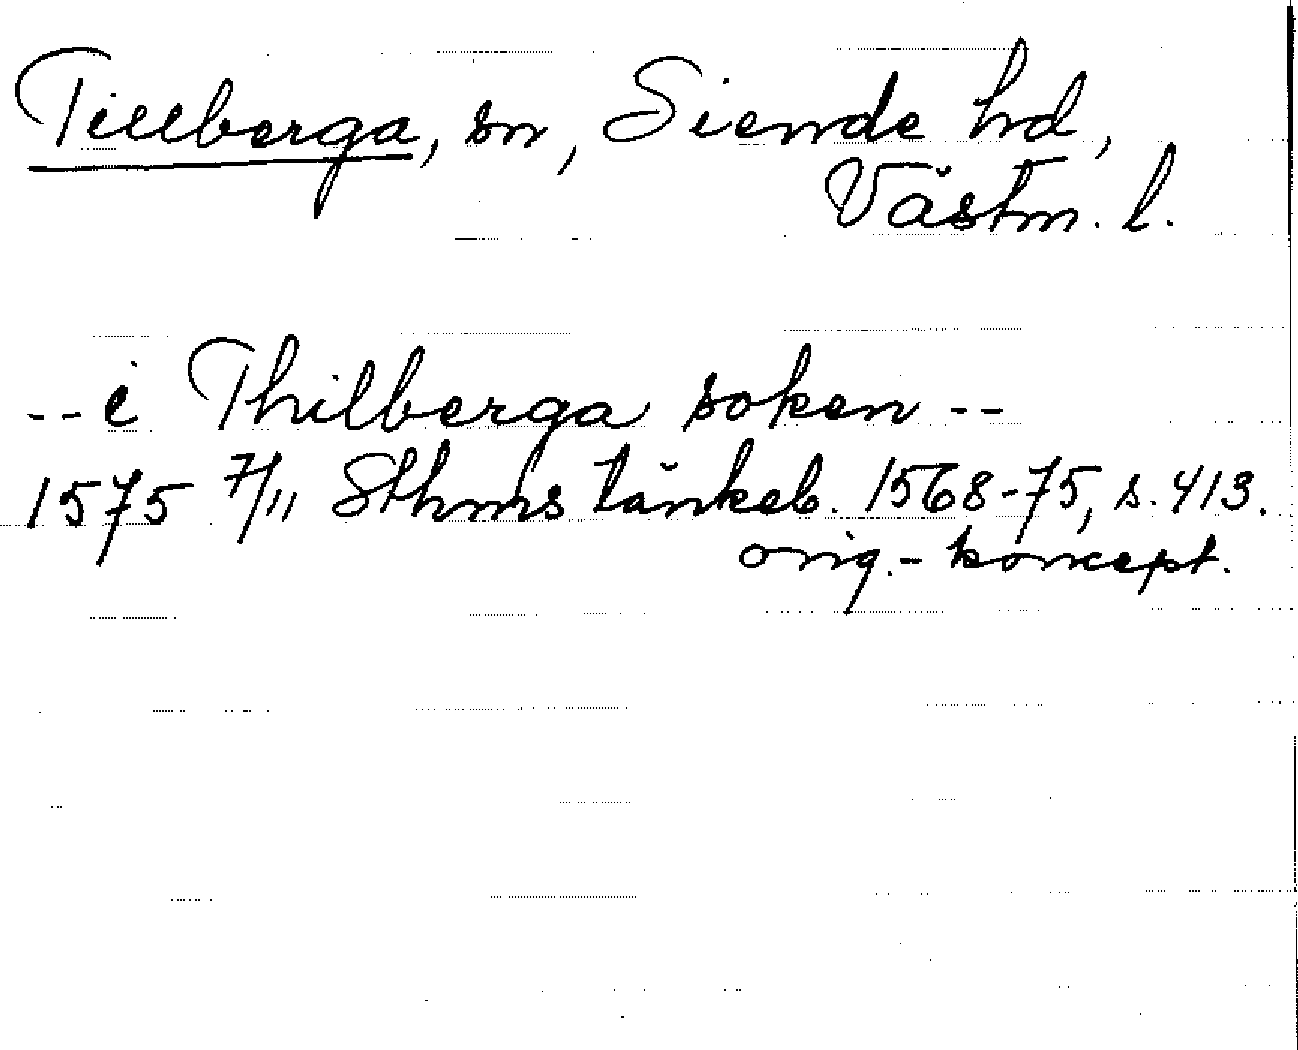 Tillberga, sn, Siende hd,
Västm. l.
-- i Thilberga soken --
1575 7/11 Sthms tänkeb. 1568-75, s. 413.
orig.- koncept.